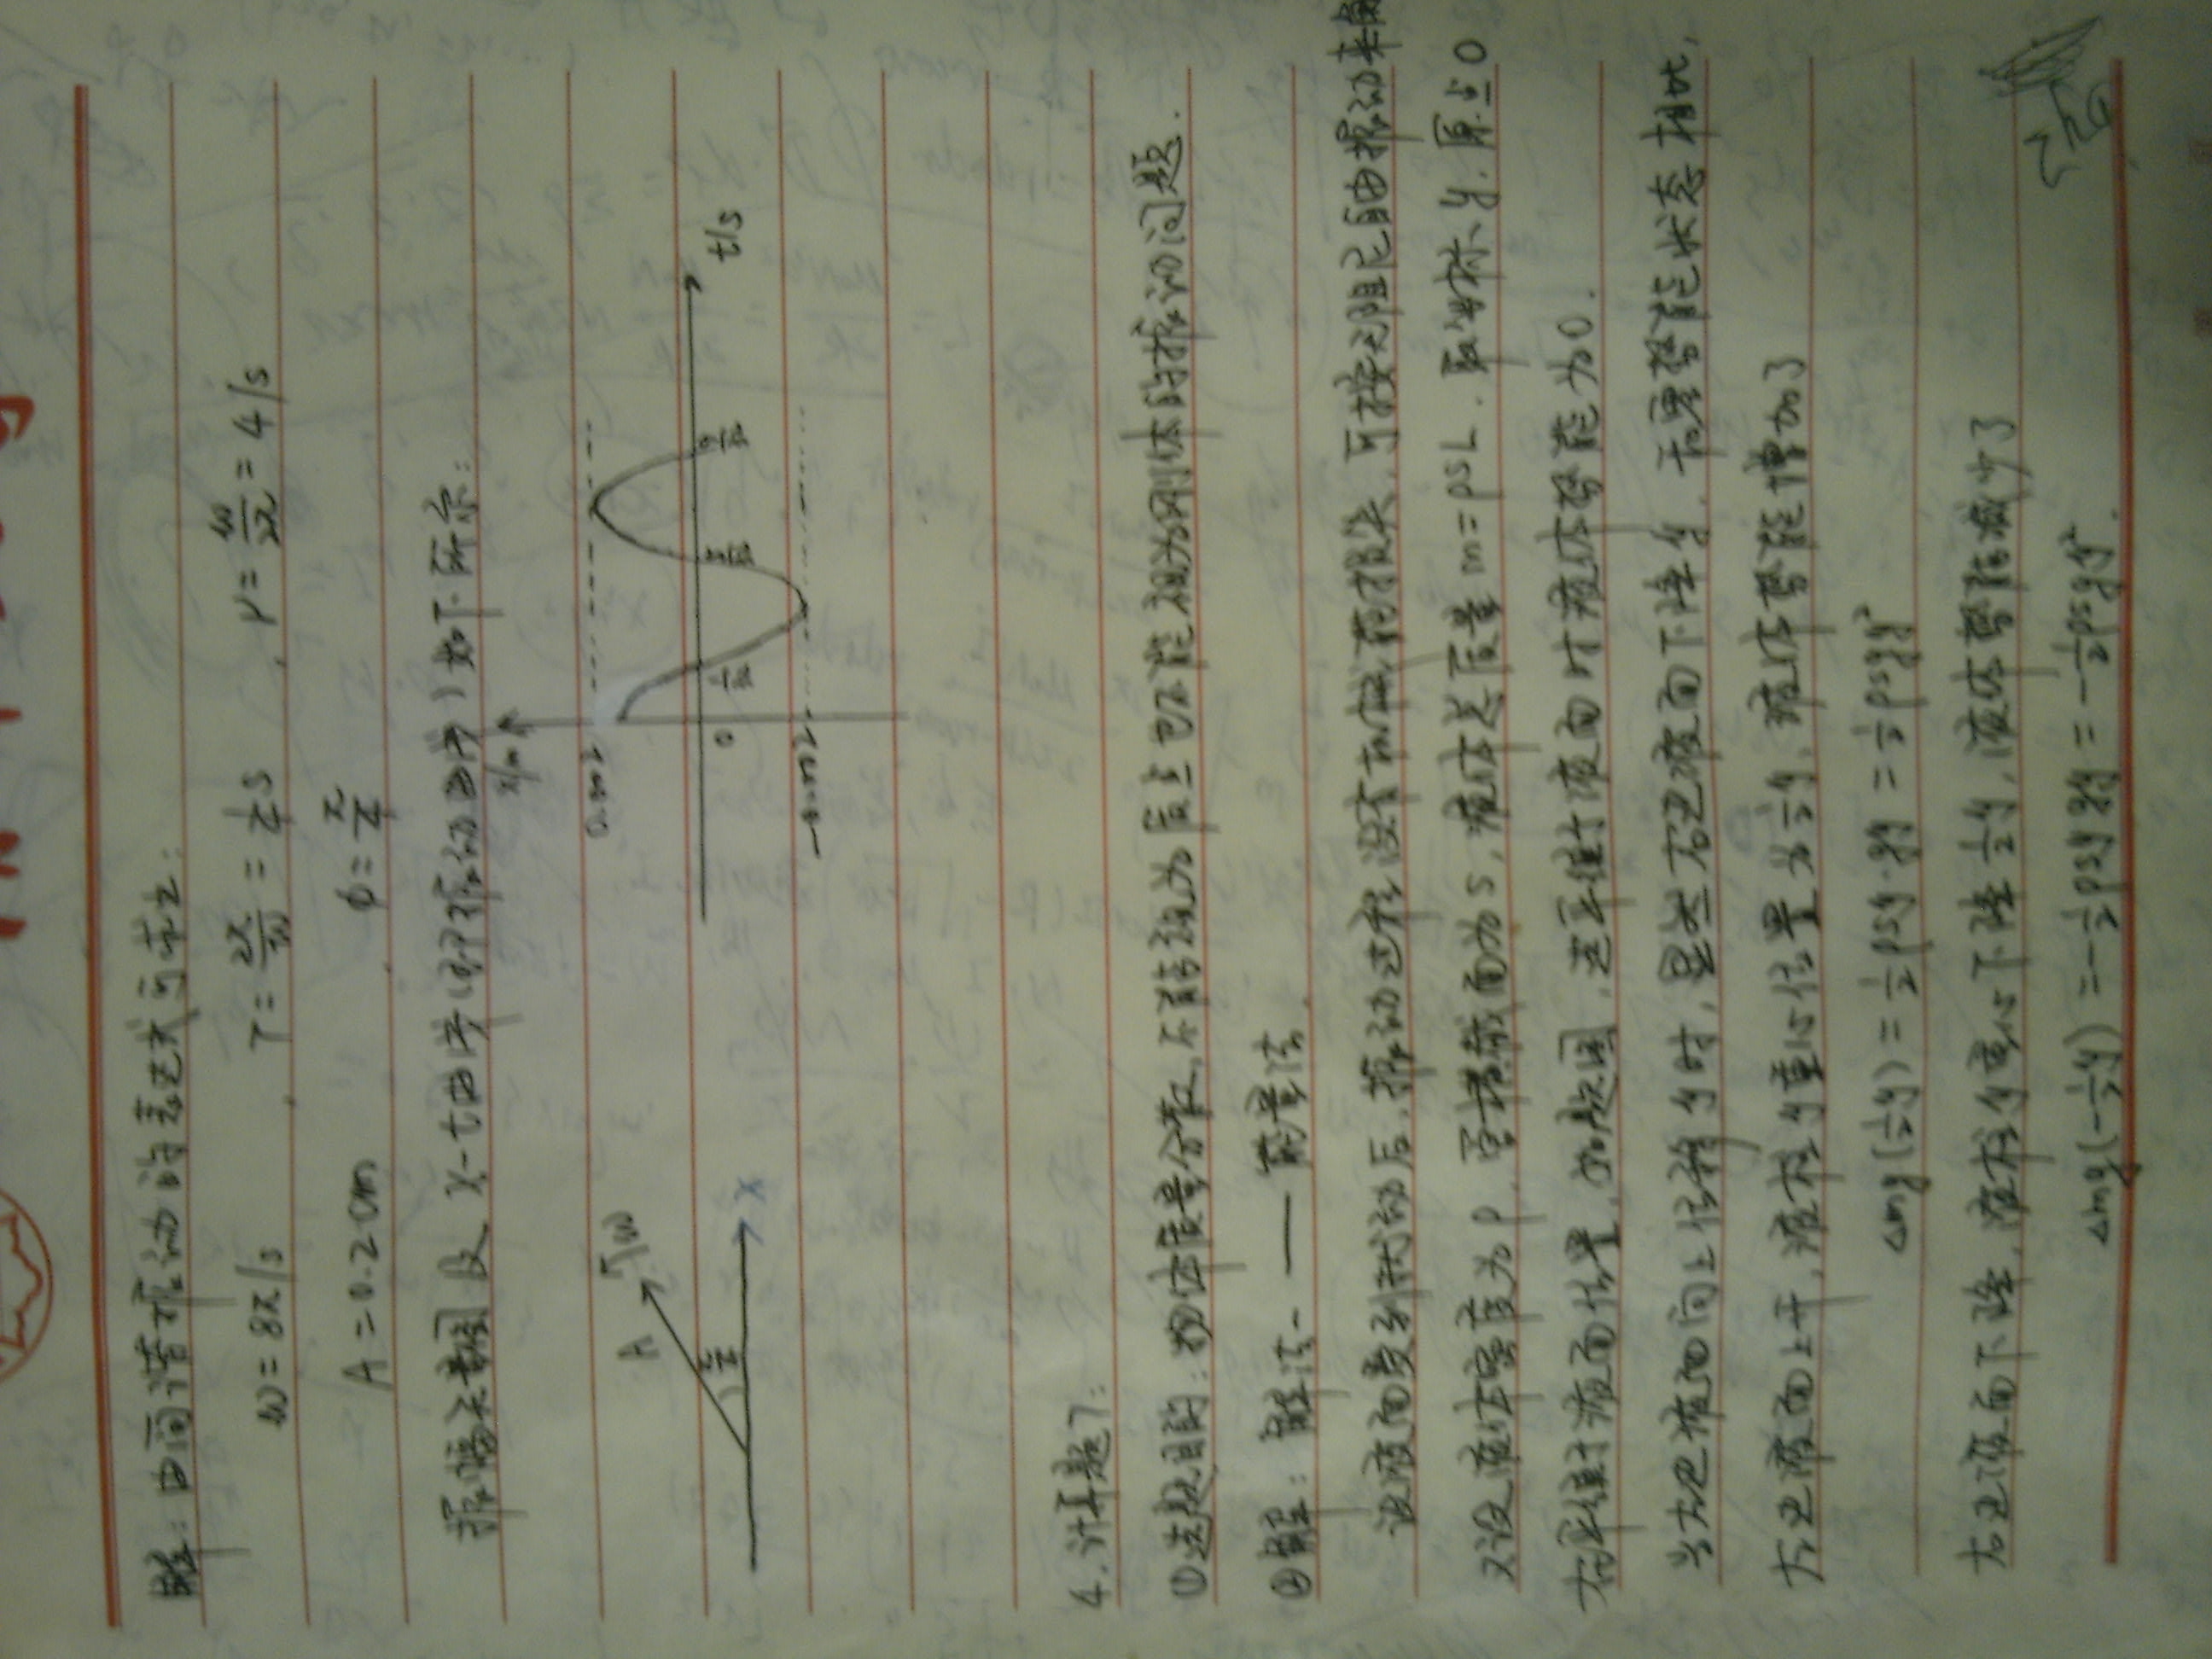 解：由简谐振动的表达式可求之：
ω=8π/s , T=2π/ω=1/4 s , ν=ω/2π=4/s
A=0.2cm , φ=π/4
振幅矢量图及x-t曲线(即振动曲线)如下所示：
x/m
0.002
A
ω
π/4
x
0
t/s
-0.002
4.计算题7：
①选题目的：物体质量分散,不能视为质点也不能视为刚体的振动问题.
②解：解法一 —— 能量法.
设液面受到扰动后,振动过程没有机械能损失,可按无阻尼自由振动来
又设液体密度为ρ,管横截面为s,液体总质量m=ρsL.取坐标y.原点O
在平衡液面位置,如题图,选平衡液面时液体势能为0.
当左边液面向上位移y时,显然右边液面下降y.与零势能状态相比,
左边液面上升,液柱y重心位置为½y,液体势能增加了
Δmg(½y)=½ρsy·gy=½ρsgy²
右边液面下降,液柱y重心下降½y,液体势能减少了
Δmg(-½y)=-½ρsygy=-½ρsgy².